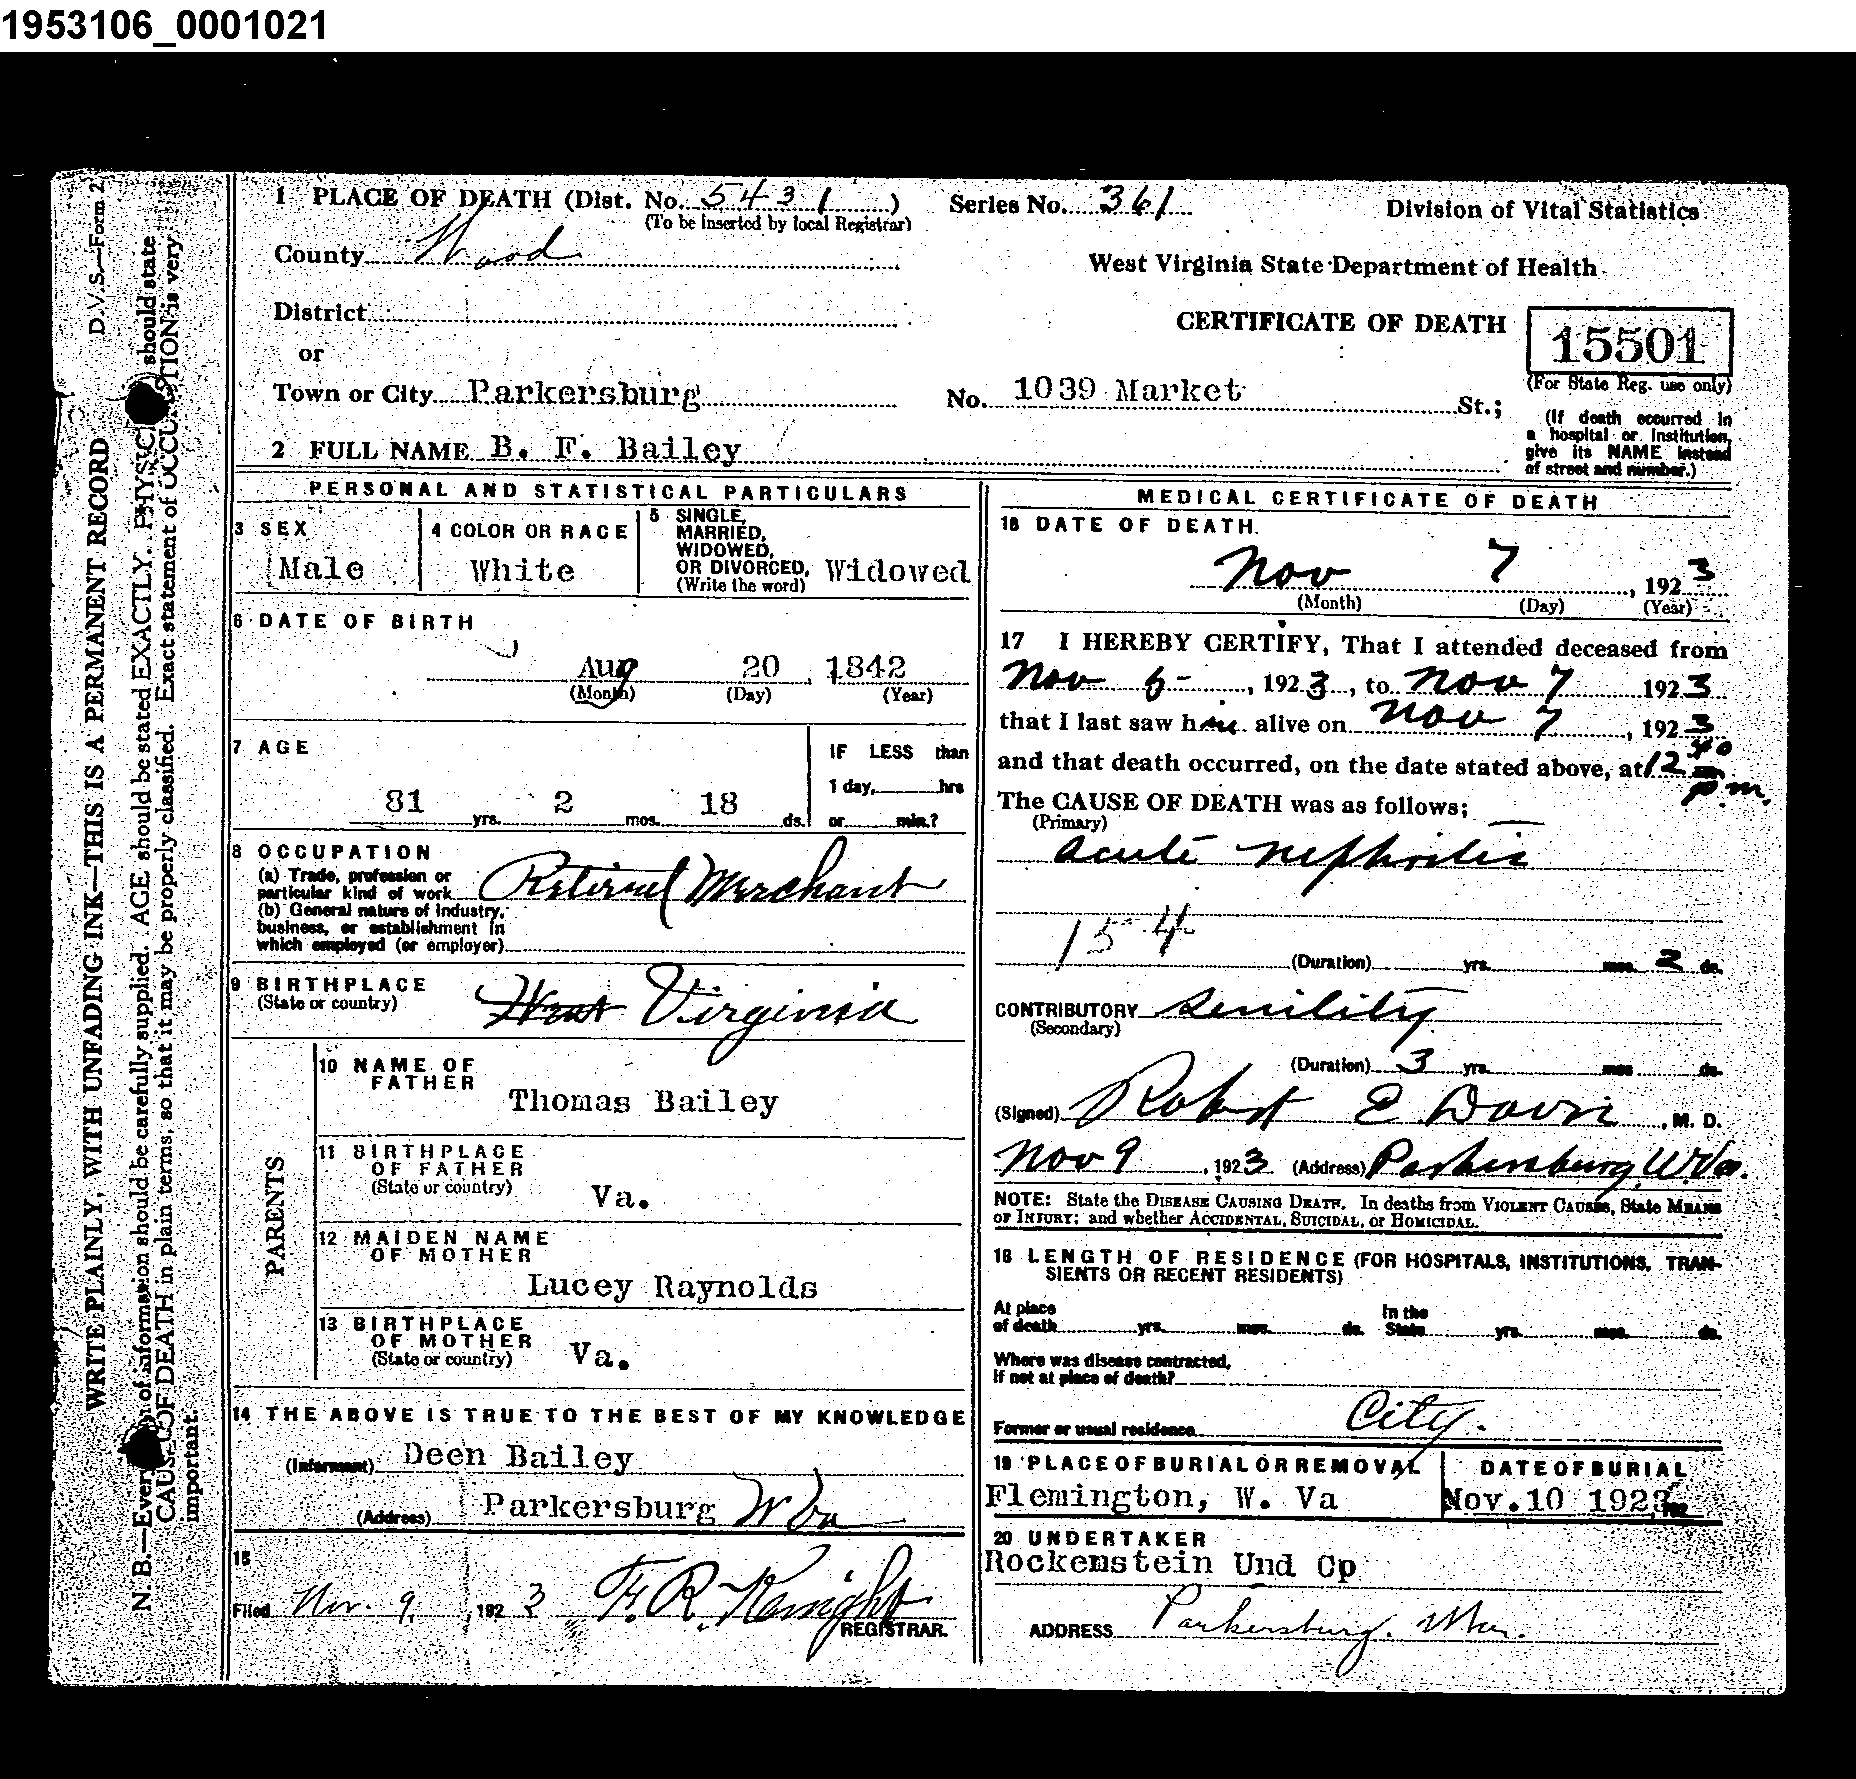 1953106_0001021
D.V.S.—Form 2
WRITE PLAINLY, WITH UNFADING INK—THIS IS A PERMANENT RECORD
N. B.—Every of information should be carefully supplied. AGE should be stated EXACTLY. PHYSIC should state
CAUS OF DEATH in plain terms, so that it may be properly classified. Exact statement of OCCU TION is very
important.
1 PLACE OF DEATH (Dist. No. 5431 )
(To be inserted by local Registrar)
Series No. 361
Division of Vital Statistics
County Wood
West Virginia State Department of Health
District
CERTIFICATE OF DEATH
15501
(For State Reg. use only)
or
Town or City Parkersburg
No. 1039 Market St.;
(If death occurred in
a hospital or Institution,
give its NAME instead
of street and number.)
2 FULL NAME B. F. Bailey
PERSONAL AND STATISTICAL PARTICULARS
3 SEX
Male
4 COLOR OR RACE
White
5 SINGLE,
MARRIED,
WIDOWED,
OR DIVORCED,
(Write the word)
Widowed
6 DATE OF BIRTH
Aug 20, 1842
(Month) (Day) (Year)
7 AGE
81 yrs. 2 mos. 18 ds.
IF LESS than
1 day, hrs
or min.?
8 OCCUPATION
(a) Trade, profession or
particular kind of work Retired Merchant
(b) General nature of Industry,
business, or establishment in
which employed (or employer)
9 BIRTHPLACE
(State or country)
West Virginia
PARENTS
10 NAME OF
FATHER
Thomas Bailey
11 BIRTHPLACE
OF FATHER
(State or country)
Va.
12 MAIDEN NAME
OF MOTHER
Lucey Raynolds
13 BIRTHPLACE
OF MOTHER
(State or country)
Va.
14 THE ABOVE IS TRUE TO THE BEST OF MY KNOWLEDGE
(Informant) Deen Bailey
(Address) Parkersburg W Va
15
Filed Nov. 9, 1923 F. R. Knight
REGISTRAR.
MEDICAL CERTIFICATE OF DEATH
16 DATE OF DEATH.
Nov 7, 1923
(Month) (Day) (Year)
17 I HEREBY CERTIFY, That I attended deceased from
Nov 6, 1923, to Nov 7 1923
that I last saw him alive on Nov 7, 1923
and that death occurred, on the date stated above, at 12 40
p.m.
The CAUSE OF DEATH was as follows:
(Primary)
acute nephritis
154
(Duration) yrs. mos. 2 ds.
CONTRIBUTORY senility
(Secondary)
(Duration) 3 yrs. mos ds.
(Signed) Robert E Davis, M. D.
Nov 9, 1923 (Address) Parkersburg, W.Va.
NOTE: State the DISEASE CAUSING DEATH. In deaths from VIOLENT CAUSES, State MEANS
OF INJURY; and whether ACCIDENTAL, SUICIDAL, or HOMICIDAL.
18 LENGTH OF RESIDENCE (FOR HOSPITALS, INSTITUTIONS, TRAN-
SIENTS OR RECENT RESIDENTS)
At place
of death yrs. mos. ds.
In the
State yrs. mos. ds.
Where was disease contracted,
If not at place of death?
Former or usual residence City.
19 PLACE OF BURIAL OR REMOVAL
Flemington, W. Va
DATE OF BURIAL
Nov. 10 1923
20 UNDERTAKER
Rockemstein Und Cp
ADDRESS Parkersburg. W Va.